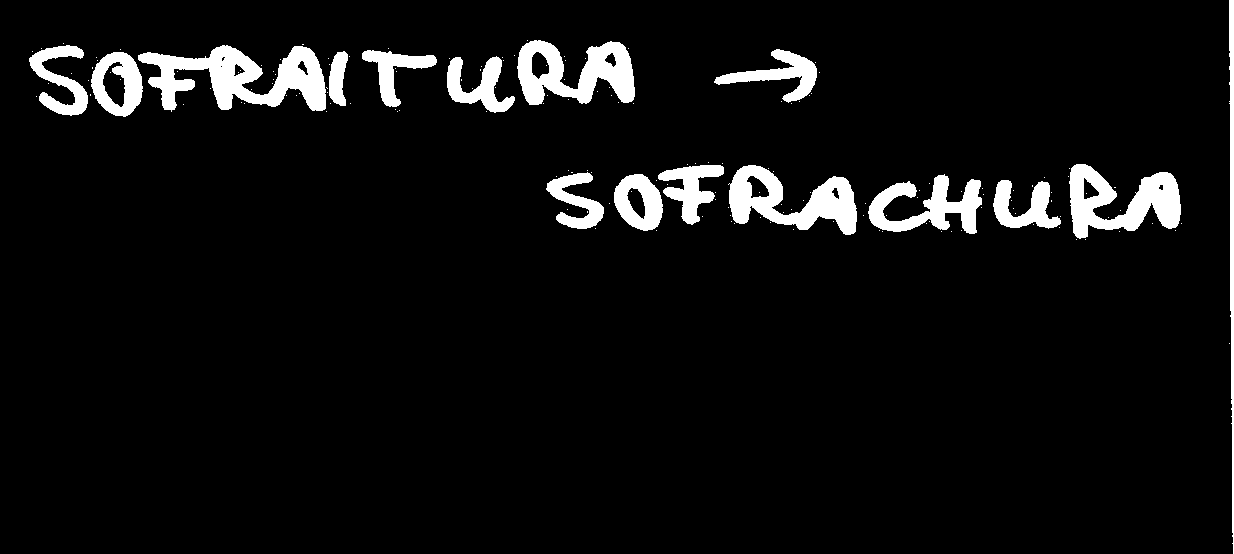 SOFRAITURA →
SOFRACHURA